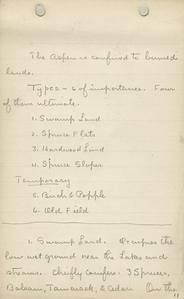 The Aspen is confined to burned
lands.
Types - 6 of importance. Four
of them ultimate.
1. Swamp Land
2. Spruce Flats
3. Hardwood Land
4. Spruce Slopes
Temporary
5. Birch & Popple
6. Old Field
1. Swamp Land. Occupies the
low wet ground near the lakes and
streams. Chiefly conifers. 3 Spruces,
Balsam, Tamarack, & Cedar. On the